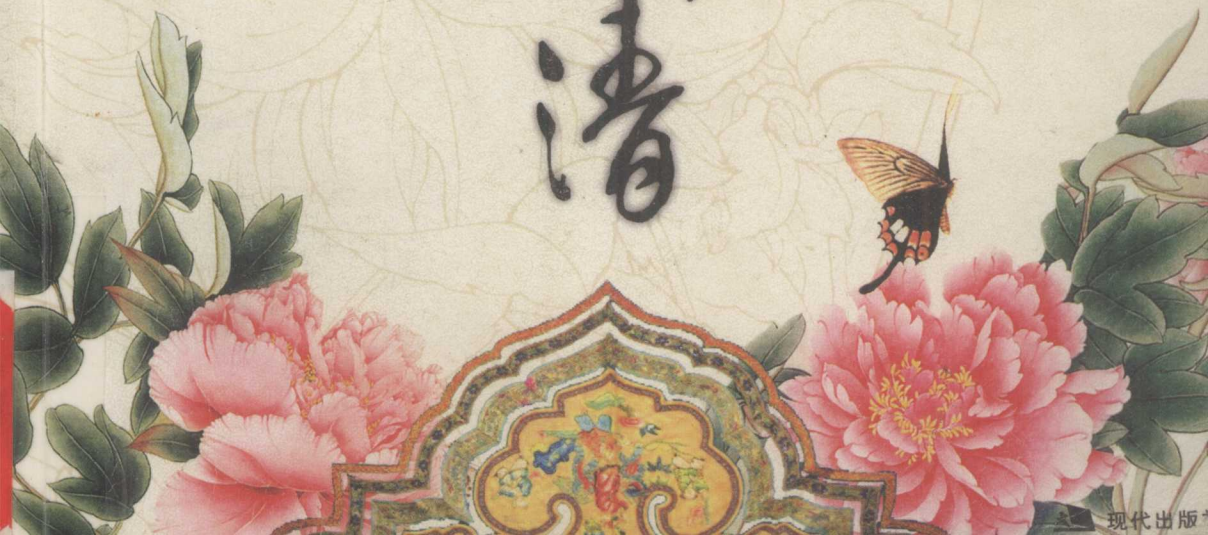 清
现代出版